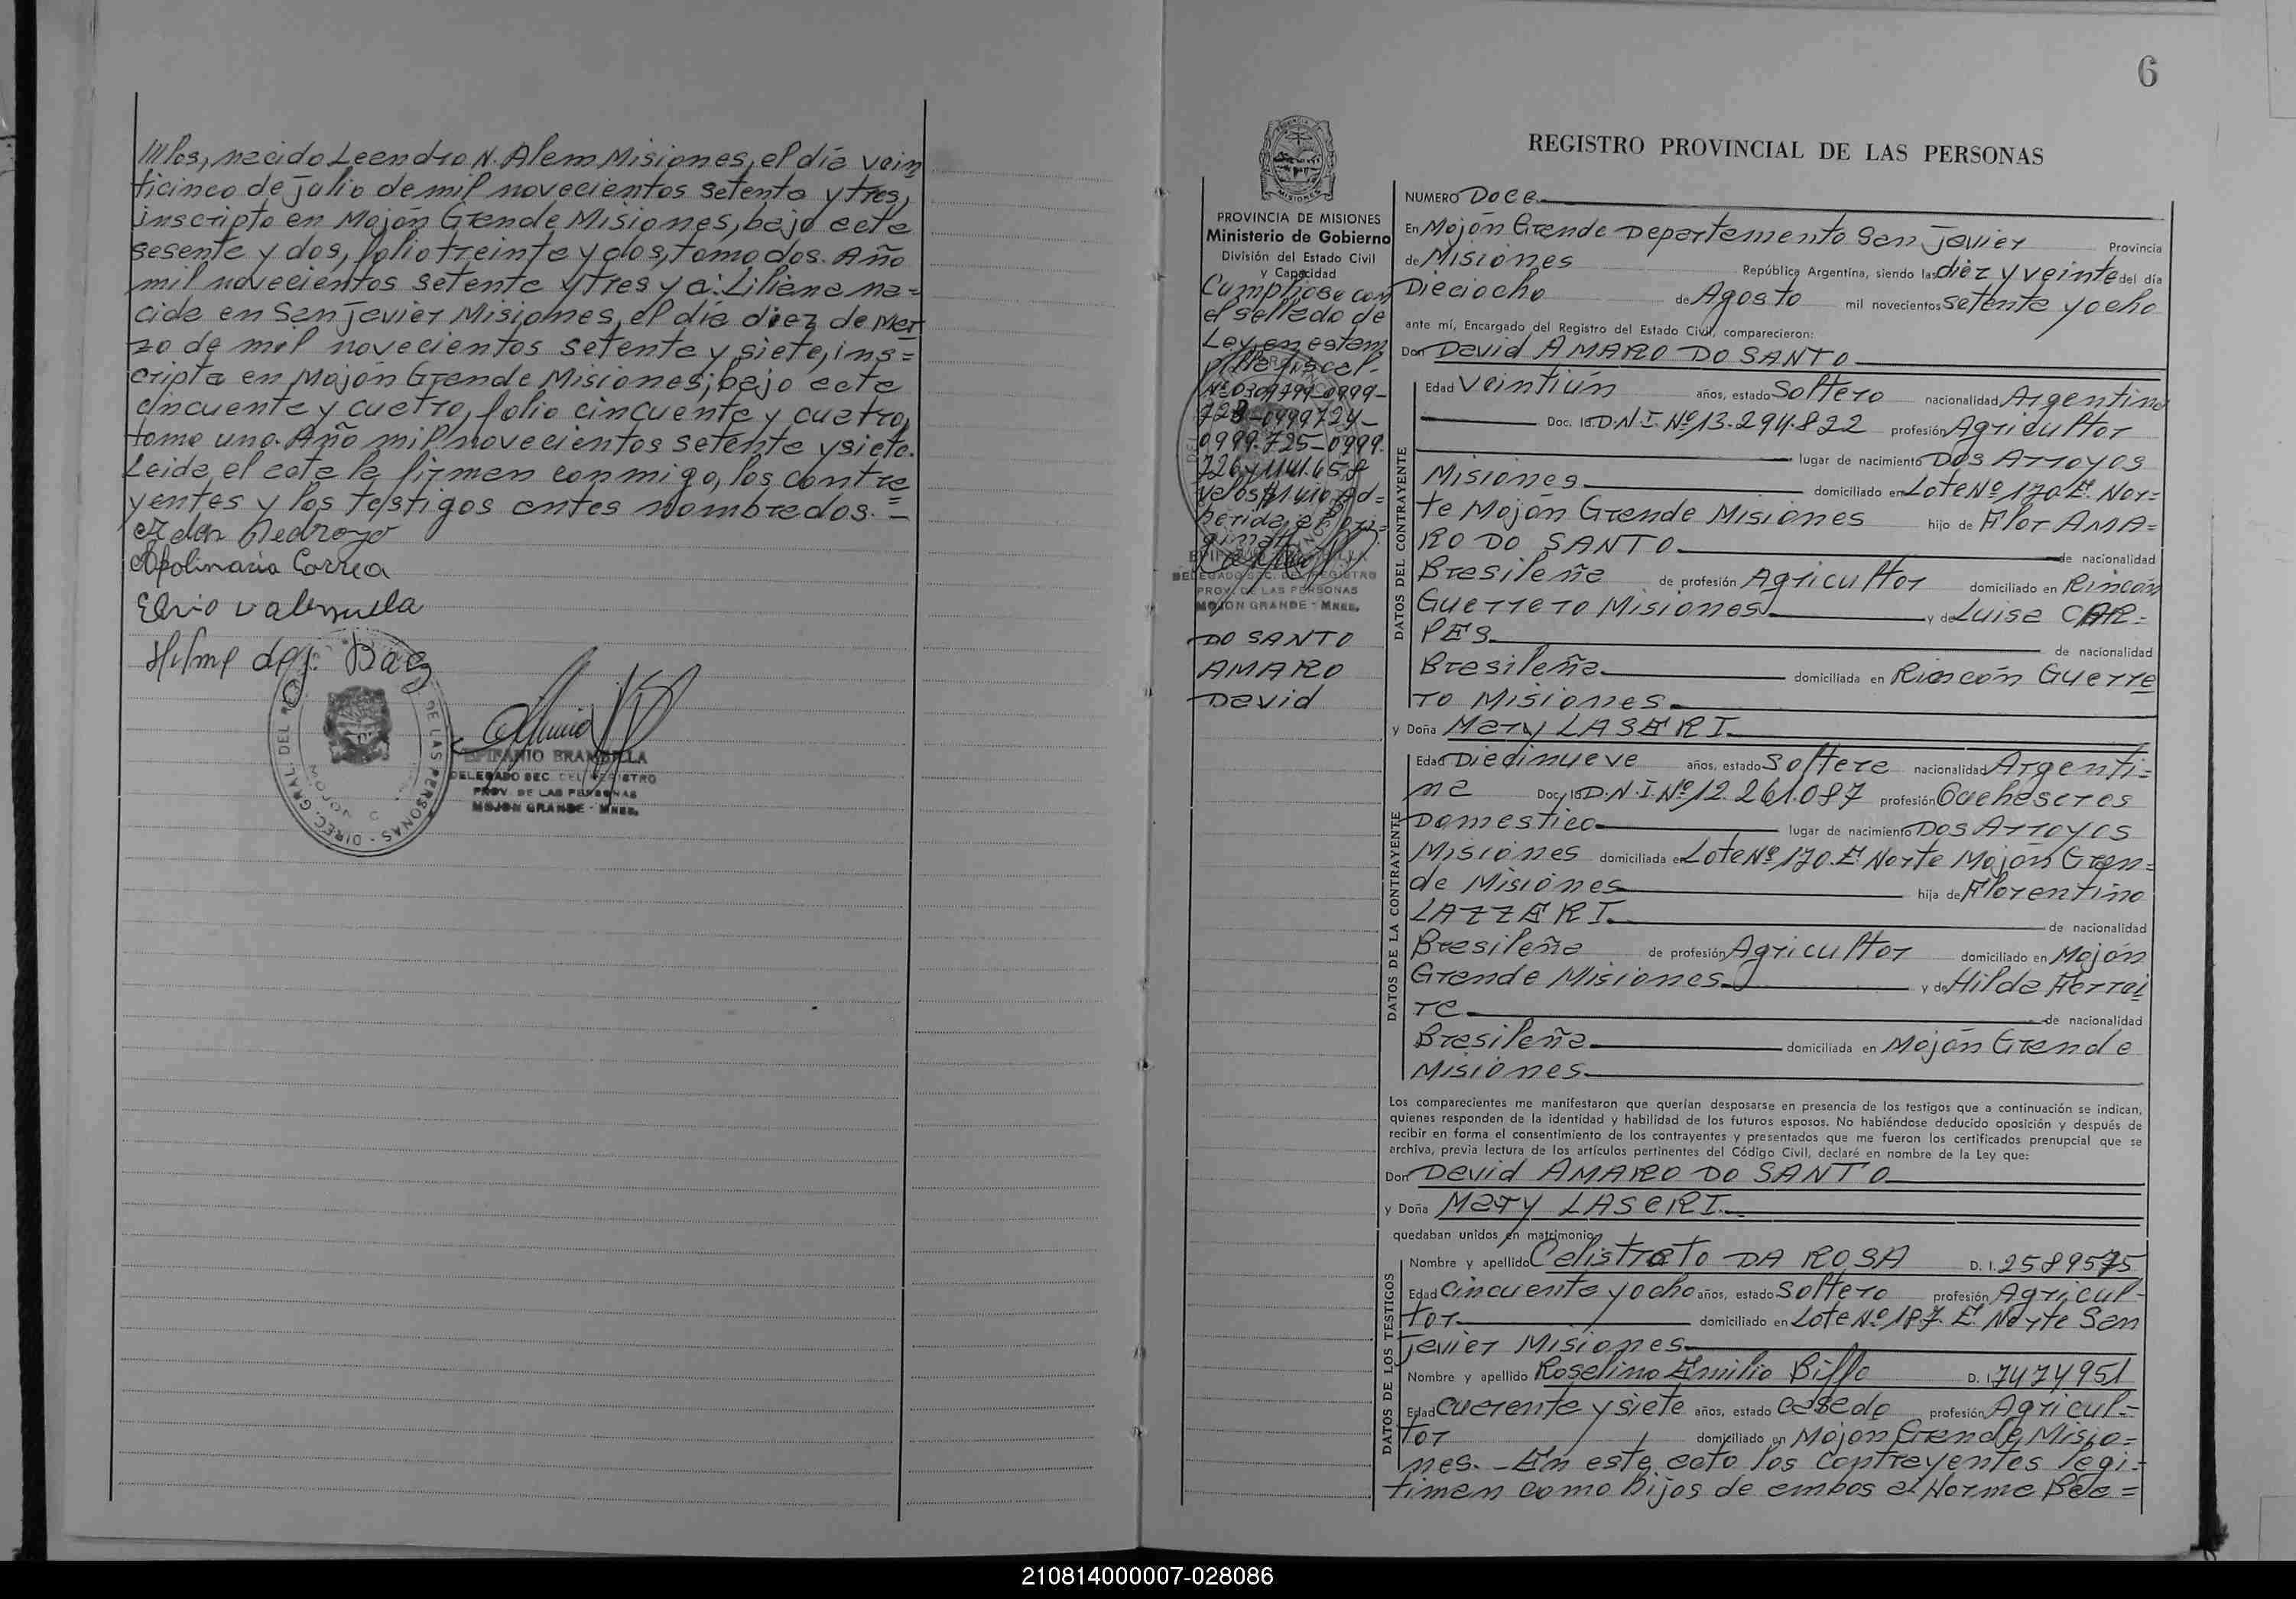 ///los, nacido Leandro N. Alem Misiones, el día vein
ticinco de julio de mil novecientos setenta y tres,
inscripto en Mojón Grande Misiones, bajo acta
sesenta y dos, folio treinta y dos, tomo dos. Año
mil novecientos setenta y tres y a: Liliana na=
cida en San Javier Misiones, el día diez de Mar
zo de mil novecientos setenta y siete, ins=
cripta en Mojon Grande Misiones; bajo acta
cincuenta y cuatro, folio cincuenta y cuatro,
tomo uno. Año mil novecientos setenta y siete.
Leida el acta la firman conmigo, los contra
yentes y los testigos antes nombrados. =
Apolinaria Correa
Elvio Valenzuela
DELEGADO SEC. DEL REGISTRO
PROV. DE LAS PERSONAS
MOJON GRANDE - Mnes.
6
REGISTRO PROVINCIAL DE LAS PERSONAS
PROVINCIA DE MISIONES
Ministerio de Gobierno
División del Estado Civil
y Capacidad
Cumpliose con
el sellado de
Ley, en estam
DELEGADO SEC. DEL REGISTRO
PROV. DE LAS PERSONAS
MOJON GRANDE - Mnes.
DO SANTO
AMARO
David
NUMERO Doce
En Mojón Grande Departamento San Javier Provincia
de Misiones República Argentina, siendo las diez y veinte del día
Dieciocho de Agosto mil novecientos setenta y ocho
ante mí, Encargado del Registro del Estado Civil, comparecieron:
Don David AMARO DO SANTO
DATOS DEL CONTRAYENTE
Edad Veintiún años, estado Soltero nacionalidad Argentina
Doc. Id. D.N.I. Nº 13.294.822 profesión Agricultor
lugar de nacimiento Dos Arroyos
Misiones domiciliado en Lote Nº 170 E. Nor=
te Mojón Grande Misiones hijo de Flor AMA=
RO DO SANTO de nacionalidad
Brasileña de profesión Agricultor domiciliado en Rincón
Guerrero Misiones y de Luisa CAR=
PES de nacionalidad
Brasileña domiciliada en Rincón Guerre
ro Misiones
y Doña Mary LASERI
DATOS DE LA CONTRAYENTE
Edad Diecinueve años, estado Soltera nacionalidad Argenti=
na Doc. Id. D.N.I. Nº 12.261.087 profesión Quehaseres
Domestico lugar de nacimiento Dos Arroyos
Misiones domiciliada en Lote Nº 170. E. Norte Mojón Gran=
de Misiones hija de Florentino
LAZZERI de nacionalidad
Brasileña de profesión Agricultor domiciliado en Mojón
Grande Misiones y de Hilda Ferrei
ra de nacionalidad
Brasileña domiciliada en Mojón Grande
Misiones
Los comparecientes me manifestaron que querían desposarse en presencia de los testigos que a continuación se indican,
quienes responden de la identidad y habilidad de los futuros esposos. No habiéndose deducido oposición y después de
recibir en forma el consentimiento de los contrayentes y presentados que me fueron los certificados prenupcial que se
archiva, previa lectura de los artículos pertinentes del Código Civil, declaré en nombre de la Ley que:
Don David AMARO DO SANTO
y Doña Mary LASERI
quedaban unidos en matrimonio
DATOS DE LOS TESTIGOS
Nombre y apellido Celistrato DA ROSA D. I. 2589575
Edad cincuenta y ocho años, estado Soltero profesión Agricul-
tor domiciliado en Lote Nº 187. E. Norte San
Javier Misiones
Nombre y apellido Roselino Emilio Biffo D. I. 7474951
Edad cuarenta y siete años, estado casado profesión Agricul=
tor domiciliado en Mojon Grande, Misio=
nes. - En este acto los contrayentes legi=
timan como hijos de ambos a: Norma
210814000007-028086